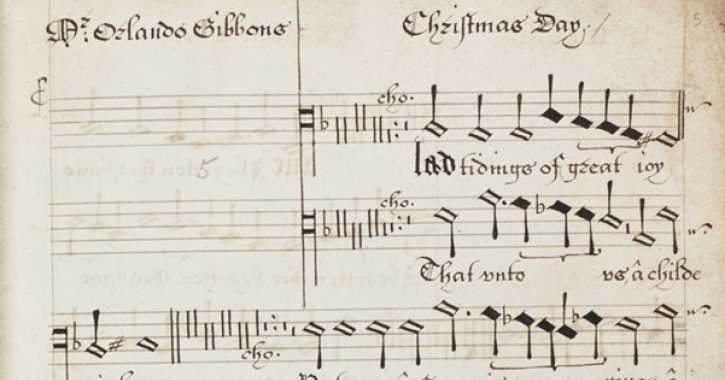 Mr: Orlando Gibbons
Christmas Day.
5
cho.
lad tidings of great ioy
5
cho.
That vnto vs, a childe
cho.